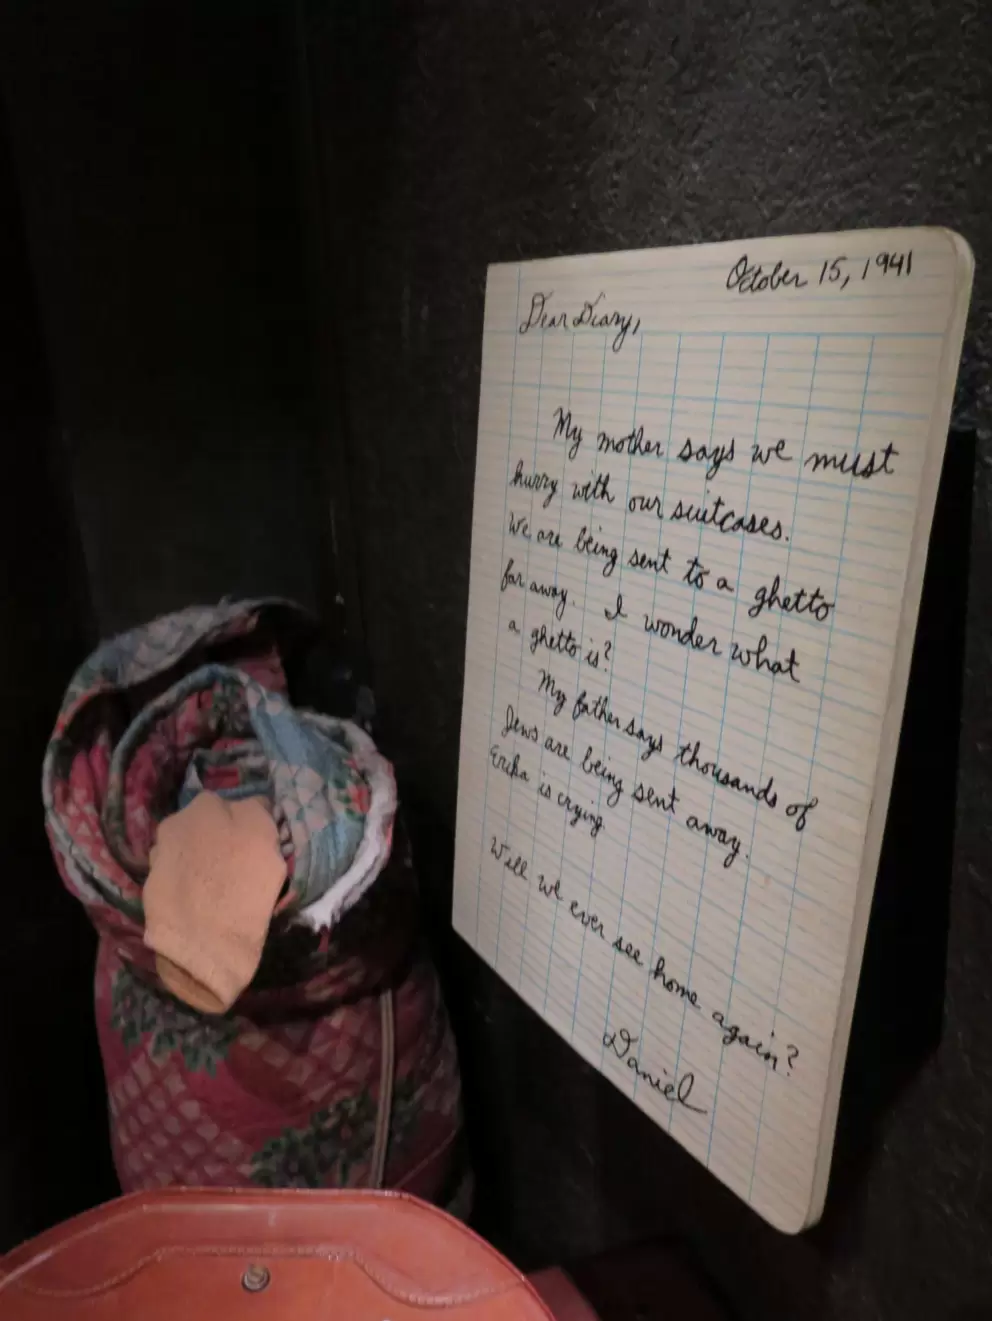 October 15, 1941
Dear Diary,
My mother says we must
hurry with our suitcases.
We are being sent to a ghetto
far away. I wonder what
a ghetto is?
My father says thousands of
Jews are being sent away.
Erika is crying.
Will we ever see home again?
Daniel